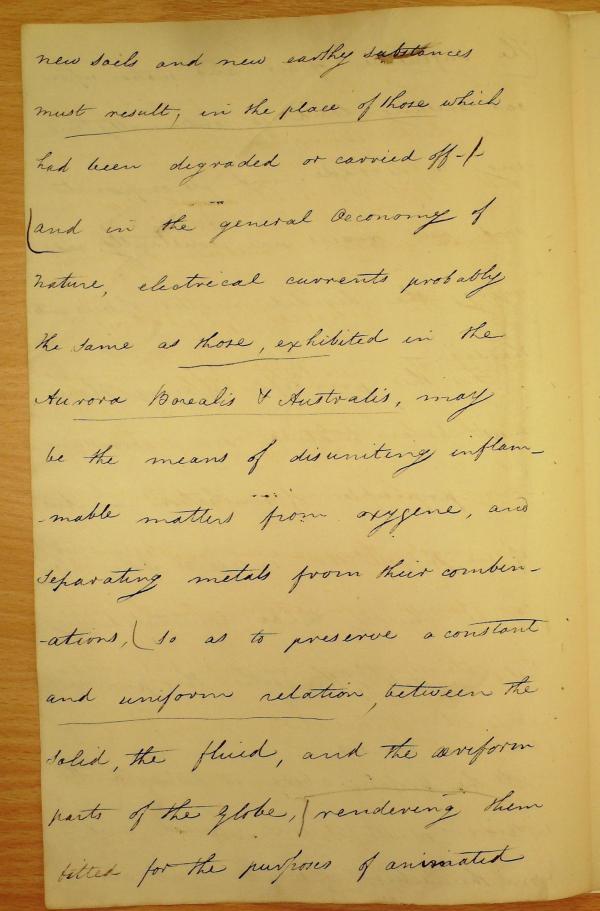 new soils and new earthy substances
must result, in the place of those which
had been degraded or carried off-/-
(and in the general Oeconomy of
Nature, electrical currents probably
the same as those, exhibited in the
Aurora Borealis & Australis, may
be the means of disuniting inflam-
-mable matters from oxygene, and
separating metals from their combin-
-ations, (so as to preserve a constant
and uniform relation, between the
solid, the fluid, and the æriform
parts of the Globe, (rendering them
fitted for the purposes of animated